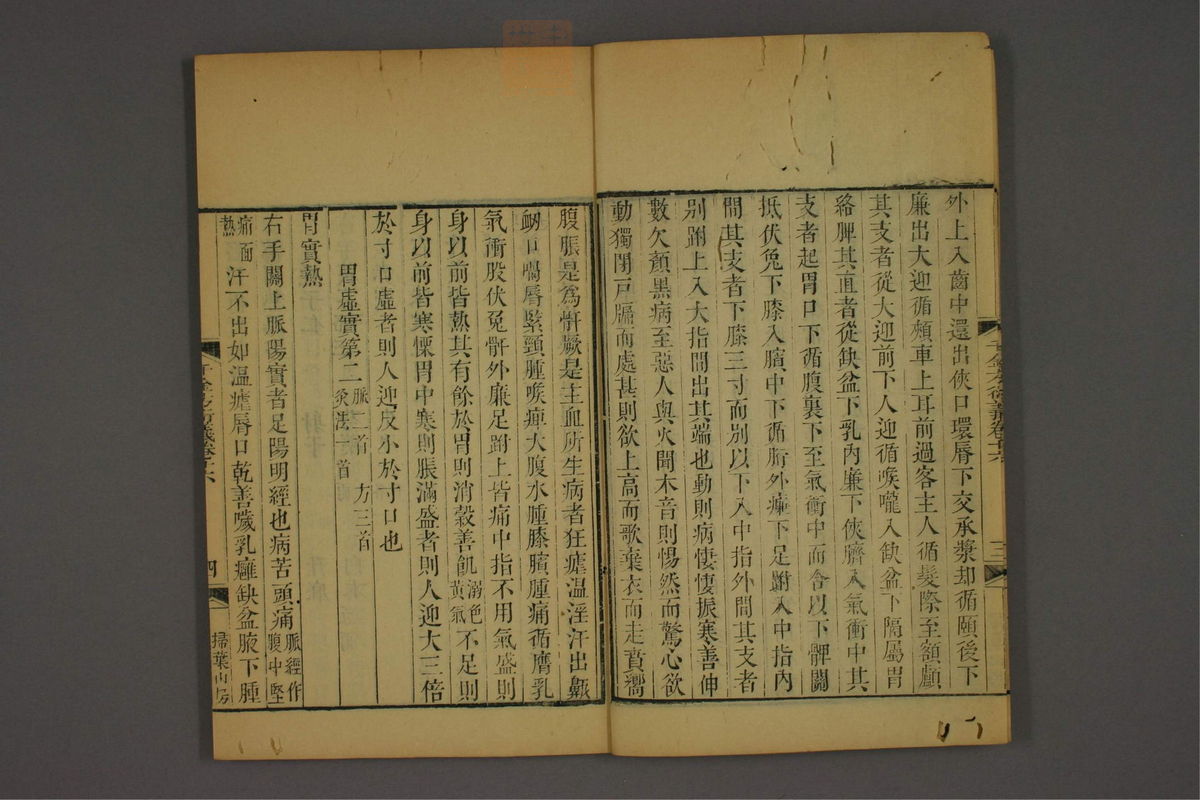 外上入齒中還出俠口環脣下交承漿却循頤後下
廉出大迎循頰車上耳前過客主人循髮際至額顱
其支者從大迎前下人迎循喉嚨入缺盆下隔屬胃
絡脾其直者從缺盆下乳內廉下俠臍入氣衝中其
支者起胃口下循腹裏下至氣衝中而合以下髀關
抵伏兔下膝入臏中下循䯒外廉下足跗入中指內
間其支者下膝三寸而別以下入中指外間其支者
別跗上入大指間出其端也動則病悽悽振寒善伸
數欠顏黑病至惡人與火聞木音則惕然而驚心欲
動獨閉戶牖而處甚則欲上高而歌棄衣而走賁嚮
三
腹脹是爲骭厥是主血所生病者狂瘧溫淫汗出鼽
衂口喎脣緊頸腫喉痺大腹水腫膝臏腫痛循膺乳
氣衝股伏兔骭外廉足跗上皆痛中指不用氣盛則
身以前皆熱其有餘於胃則消穀善飢溺色黃氣不足則
身以前皆寒慄胃中寒則脹滿盛者則人迎大三倍
於寸口虛者則人迎反小於寸口也
胃虛實第二 脈二首 方三首 灸法一首
胃實熱
右手關上脈陽實者足陽明經也病苦頭痛脈經作腹中堅
痛面熱汗不出如溫瘧脣口乾善噦乳癰缺盆腋下腫
四
掃葉山房